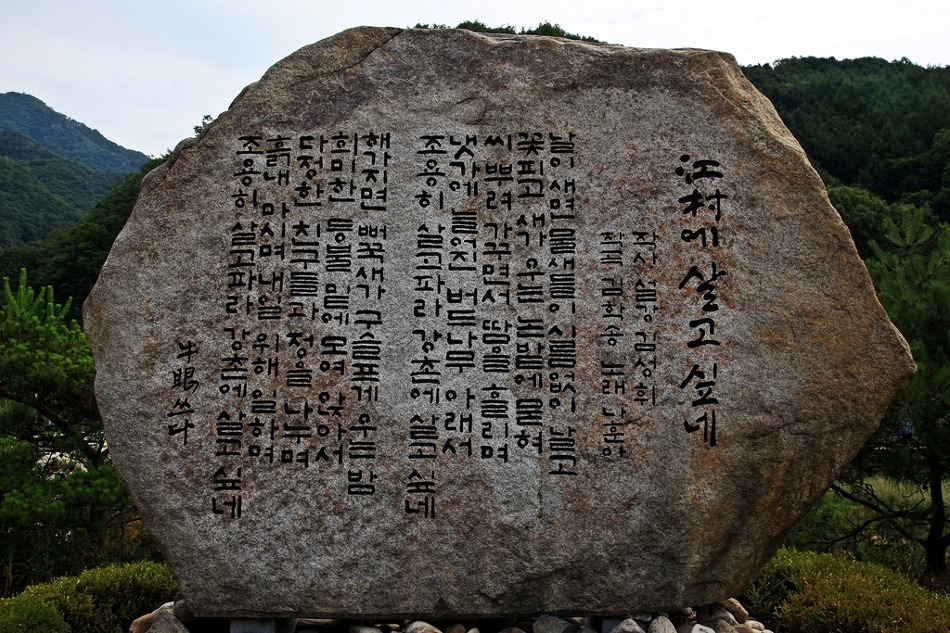 江村에 살고 싶네
작사 설강 김성휘
작곡 김학송 노래 나훈아
날이 새면 물새들이 시름없이 날고
꽃피고 새가 우는 논밭에 묻혀
씨 뿌려 가꾸면서 땀을 흘리며
냇가에 늘어진 버드나무 아래서
조용히 살고파라 강촌에 살고 싶네
해가 지면 뻐꾹새가 구슬프게 우는 밤
희미한 등불 밑에 모여 앉아서
다정한 친구들과 정을 나누며
흙내 마시며 내일 위해 일하며
조용히 살고파라 강촌에 살고 싶네
牛眠 쓰다